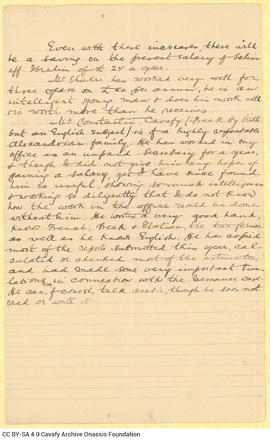 Even with these increases there will
be a saving on the present salary of Selim
eff. Ibrahim of £ 24 a year.
Mr Shukri has worked very well for
three years on £ 60 per annum, he is an
intelligent young man & does his work well
is worth more than he receives
Mr Constantin Cavafy (Greek by birth
but an English subject) is of a highly respectable
Alexandrian family. He has worked in my
office as an unpaid Secretary for a year,
& though I did not give him any hopes of
gaining a salary, yet I have since found
him so useful, showing so much intelligence
& working so diligently that I do not know
how the work in the office would be done
without him. He writes a very good hand,
knows French, Greek & Italian, the two former
as well as he knows English. He has copied
most of the reports submitted this year, cal-
culated or checked most of the estimates,
and had made some very important trans-
lations in connection with the case.
He can, of course, talk arabic, though he does not
read or write it
CC BY-SA 4.0 Cavafy Archive Onassis Foundation